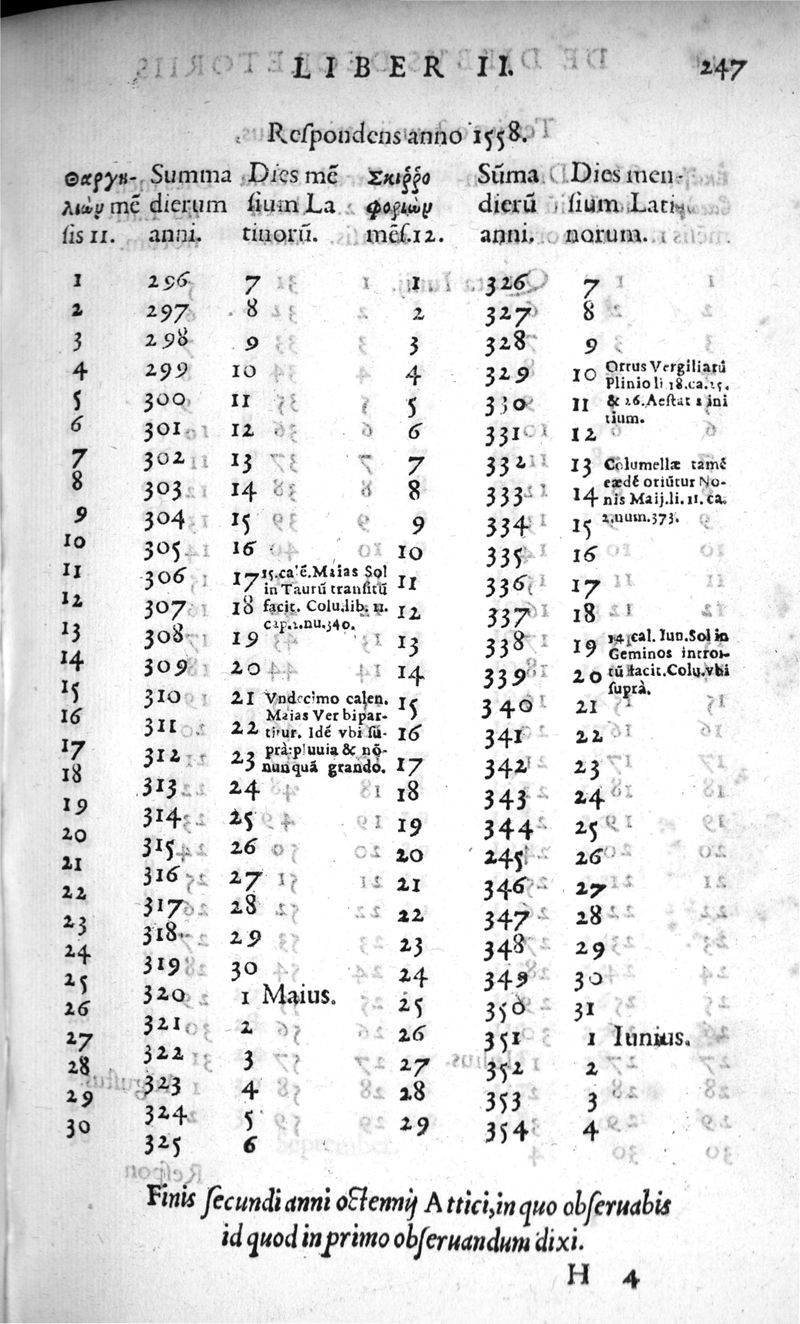 LIBER II. 247
Reſpondens anno 1558.
Θαργη- Summa Dies mē Σκιῤῥο Sūma Dies men-
λιὼν mē dierum ſium La φοριὼν dierū ſium Lati-
ſis 11. anni. tinorū. mēſ.12. anni. norum.
1 296 7 1 326 7
2 297 8 2 327 8
3 298 9 3 328 9
4 299 10 4 329 10 Ortus Vergiliarū
Plinio li 18.ca.25.
5 300 11 5 330 11 & 26. Aeſtatis ini
tium.
6 301 12 6 331 12
7 302 13 7 332 13 Columellæ tamē
eædē oriūtur No-
8 303 14 8 333 14 nis Maij.li.11.ca.
2.num.373.
9 304 15 9 334 15
10 305 16 10 335 16
11 306 17 15.calē.Maias Sol 11 336 17
in Taurū tranſitū
12 307 18 facit. Colu.lib. 11. 12 337 18
cap.2.nu.340.
13 308 19 13 338 19 14.cal. Iun.Sol in
Geminos introi-
14 309 20 14 339 20 tū facit.Colu.vbi
ſuprà.
15 310 21 Vndecimo calen. 15 340 21
Maias Ver bipar-
16 311 22 titur. Idē vbi ſu- 16 341 22
prà:pluuia & nō-
17 312 23 nunquā grando. 17 342 23
18 313 24 18 343 24
19 314 25 19 344 25
20 315 26 20 245 26
21 316 27 21 346 27
22 317 28 22 347 28
23 318 29 23 348 29
24 319 30 24 349 30
25 320 1 Maius. 25 350 31
26 321 2 26 351 1 Iunius.
27 322 3 27 352 2
28 323 4 28 353 3
29 324 5 29 354 4
30 325 6
Finis ſecundi anni octennij Attici,in quo obſeruabis
id quod in primo obſeruandum dixi.
H 4